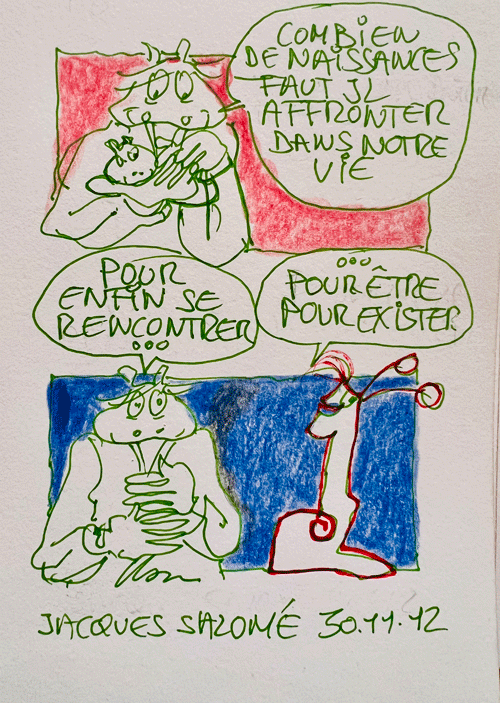 COMBIEN
DE NAISSANCES
FAUT IL
AFFRONTER
DANS NOTRE
VIE
POUR
ENFIN SE
RENCONTRER
...
...
POUR ÊTRE
POUR EXISTER
JACQUES SALOMÉ 30.11.12